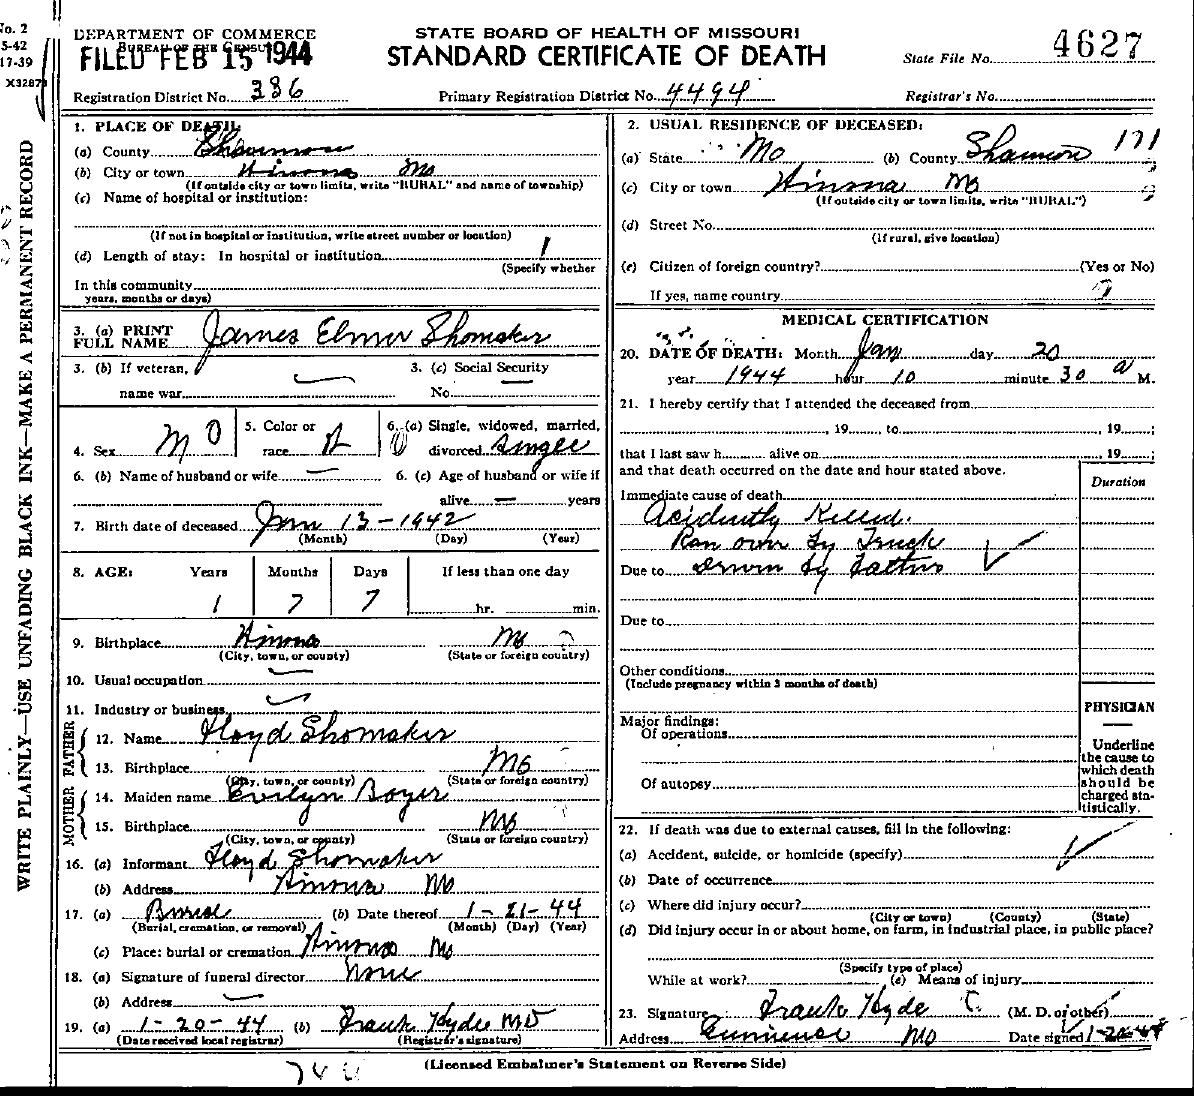 No. 2
5-42
17-39
X3287
WRITE PLAINLY—USE UNFADING BLACK INK—MAKE A PERMANENT RECORD
DEPARTMENT OF COMMERCE
BUREAU OF THE CENSUS
FILED FEB 15 1944
STATE BOARD OF HEALTH OF MISSOURI
STANDARD CERTIFICATE OF DEATH
State File No. 4627
Registration District No. 336
Primary Registration District No. 4494
Registrar's No.
1. PLACE OF DEATH:
(a) County Shannon
(b) City or town Winona Mo
(If outside city or town limits, write "RURAL" and name of township)
(c) Name of hospital or institution:
(If not in hospital or institution, write street number or location)
(d) Length of stay: In hospital or institution
(Specify whether
In this community
years, months or days)
2. USUAL RESIDENCE OF DECEASED:
(a) State Mo (b) County Shannon 171
(c) City or town Winona Mo
(If outside city or town limits, write "RURAL")
(d) Street No.
(If rural, give location)
(e) Citizen of foreign country? (Yes or No)
If yes, name country
3. (a) PRINT
FULL NAME James Elmer Shomaker
3. (b) If veteran,
name war
3. (c) Social Security
No.
4. Sex M 0
5. Color or
race W
6. (a) Single, widowed, married,
divorced Single
6. (b) Name of husband or wife
6. (c) Age of husband or wife if
alive — years
7. Birth date of deceased Jan 13-1942
(Month) (Day) (Year)
8. AGE: Years Months Days If less than one day
1 7 7 hr. min.
9. Birthplace Winona Mo
(City, town, or county) (State or foreign country)
10. Usual occupation
11. Industry or business
FATHER
12. Name Floyd Shomaker
13. Birthplace Mo
(City, town, or county) (State or foreign country)
MOTHER
14. Maiden name Evilyn Boyer
15. Birthplace Mo
(City, town, or county) (State or foreign country)
16. (a) Informant Floyd Shomaker
(b) Address Winona Mo
17. (a) Burial (b) Date thereof 1-21-44
(Burial, cremation, or removal) (Month) (Day) (Year)
(c) Place: burial or cremation Winona Mo
18. (a) Signature of funeral director None
(b) Address
19. (a) 1-20-44 (b) Frank Hyde MD
(Date received local registrar) (Registrar's signature)
MEDICAL CERTIFICATION
20. DATE OF DEATH: Month Jan day 20
year 1944 hour 10 minute 30 a M.
21. I hereby certify that I attended the deceased from
, 19 , to , 19 ;
that I last saw h alive on , 19 ;
and that death occurred on the date and hour stated above.
Duration
Immediate cause of death
Acidently Killed.
Ran over by Truck
Due to Drivin by Father
Due to
Other conditions
(Include pregnancy within 3 months of death)
Major findings:
Of operations
Of autopsy
PHYSICIAN
Underline
the cause to
which death
should be
charged sta-
tistically.
22. If death was due to external causes, fill in the following:
(a) Accident, suicide, or homicide (specify)
(b) Date of occurrence
(c) Where did injury occur?
(City or town) (County) (State)
(d) Did injury occur in or about home, on farm, in industrial place, in public place?
(Specify type of place)
While at work? (e) Means of injury
23. Signature Frank Hyde (M. D. or other)
Address Eminence Mo Date signed 1-20-44
(Licensed Embalmer's Statement on Reverse Side)